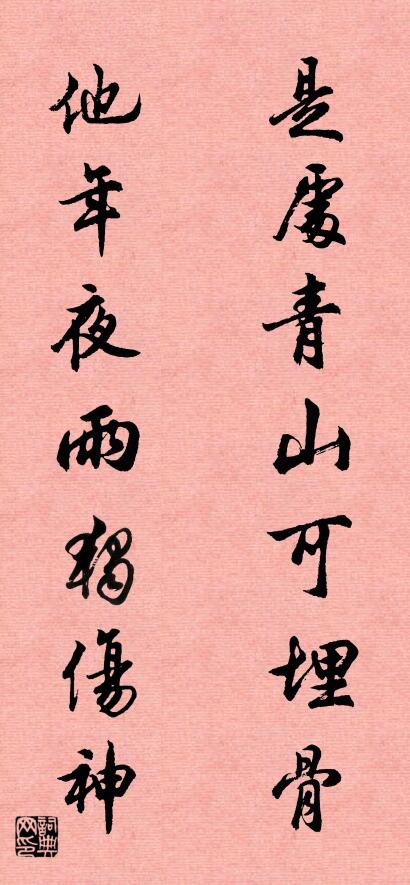 是處青山可埋骨
他年夜雨獨傷神
詞典網印